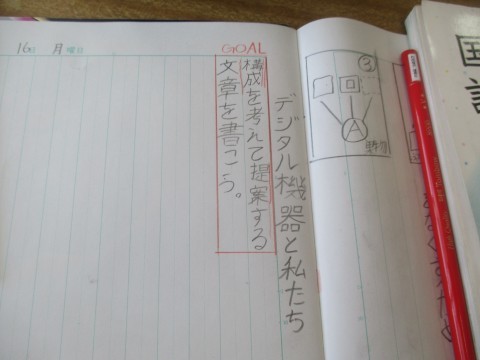 16日 月曜日
デジタル機器と私たち
GOAL
構成を考えて提案する
文章を書こう。
③
A
国語